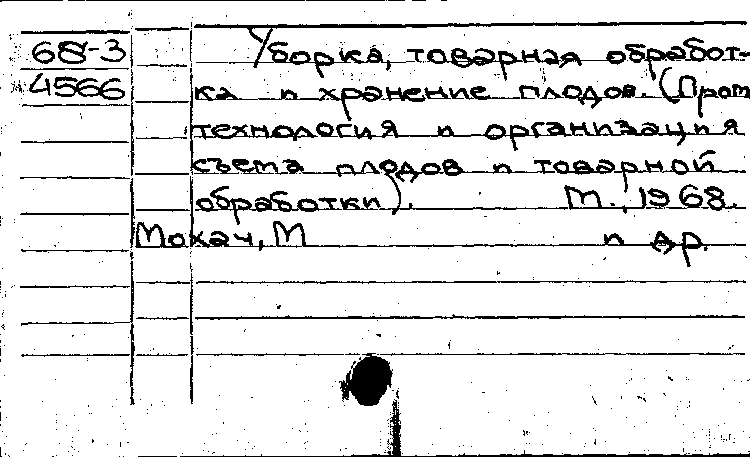 68-3 Уборка, товарная обработ-
4566 ка и хранение плодов. (Пром
технология и организация
съема плодов и товарной
обработки). М., 1968.
Мохач, М и др.